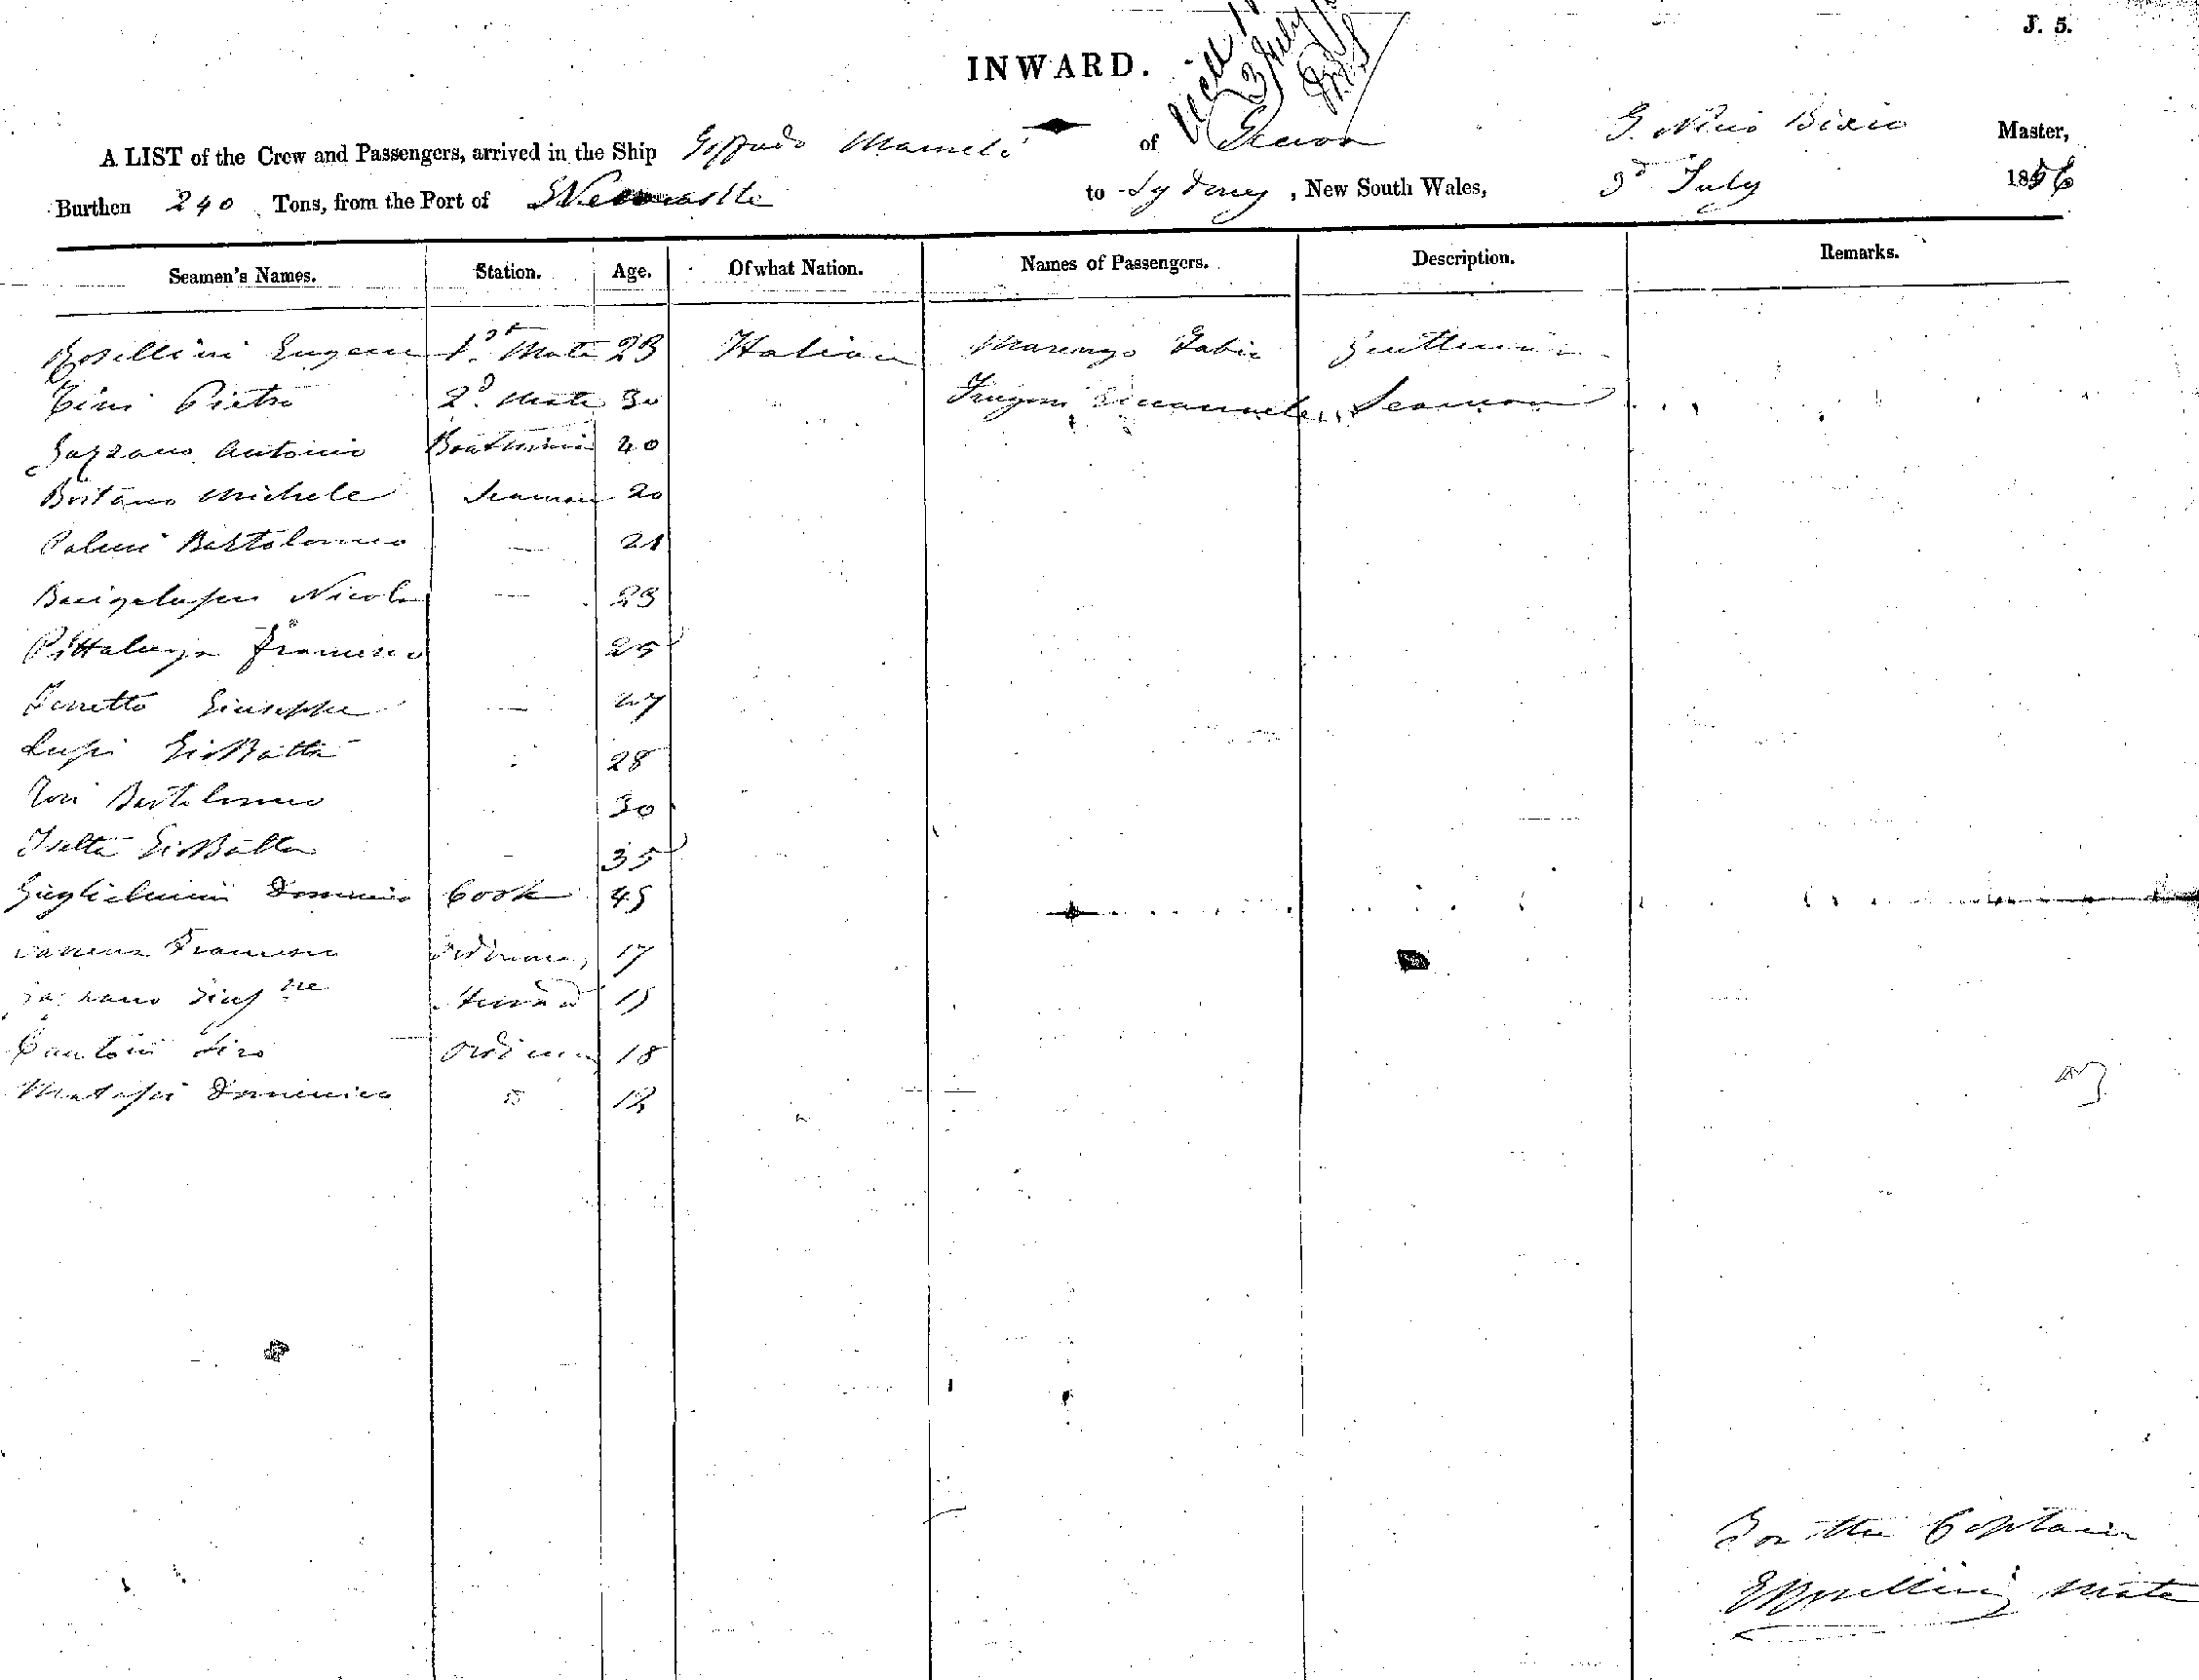 J. 5.
INWARD.
3 July
A LIST of the Crew and Passengers, arrived in the Ship Goffredo Mameli of Genoa G. Nino Bixio Master,
Burthen 240 Tons, from the Port of Newcastle to Sydney, New South Wales, 3d July 1856
Seamen's Names. Station. Age. Of what Nation. Names of Passengers. Description. Remarks.
Rosellini Eugenio 1st Mate 23 Italian Marengo Fabio Gentleman
Tini Pietro 2d. Mate 30 Frugoni Emanuele Seaman
Gazzano Antonio Boatswain 40
Boitano Michele Seaman 20
Bartolomeo — 21
Bacigalupo Nicola — 23
Pittaluga Francisco 25
Ferretto Giuseppe — 27
Lupi Gio Batta 28
Bartolomeo 30
Isetta Gio Batta 35
Guglielmini Domenico Cook 45
Francesco Ordinary 17
Gazzano Giuspe Steward 15
Cantoni Siro Ordinary 18
Domenico do 12
For the Captain
E Rosellini Mate